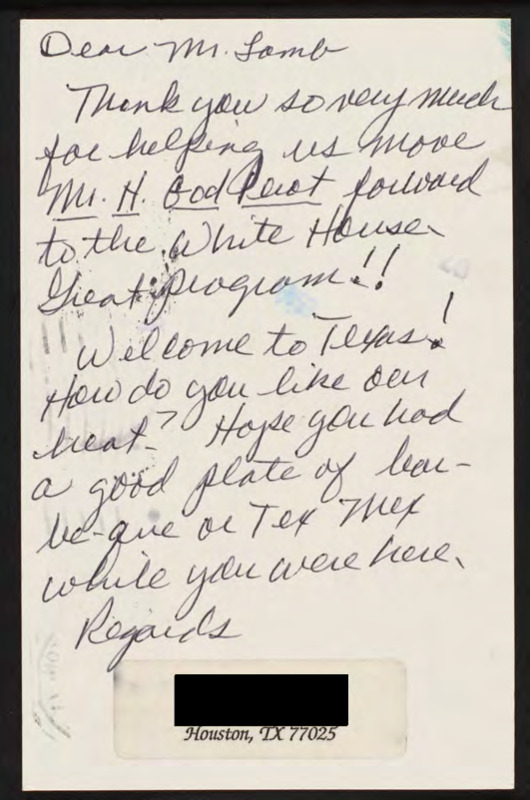 Dear Mr. Lamb
Thank you so very much
for helping us move
Mr. H. God Perot forward
to the White House.
Great program!!
Welcome to Texas!
How do you like our
heat? Hope you had
a good plate of bar-
be-que or Tex Mex
while you were here.
Regards
Houston, TX 77025